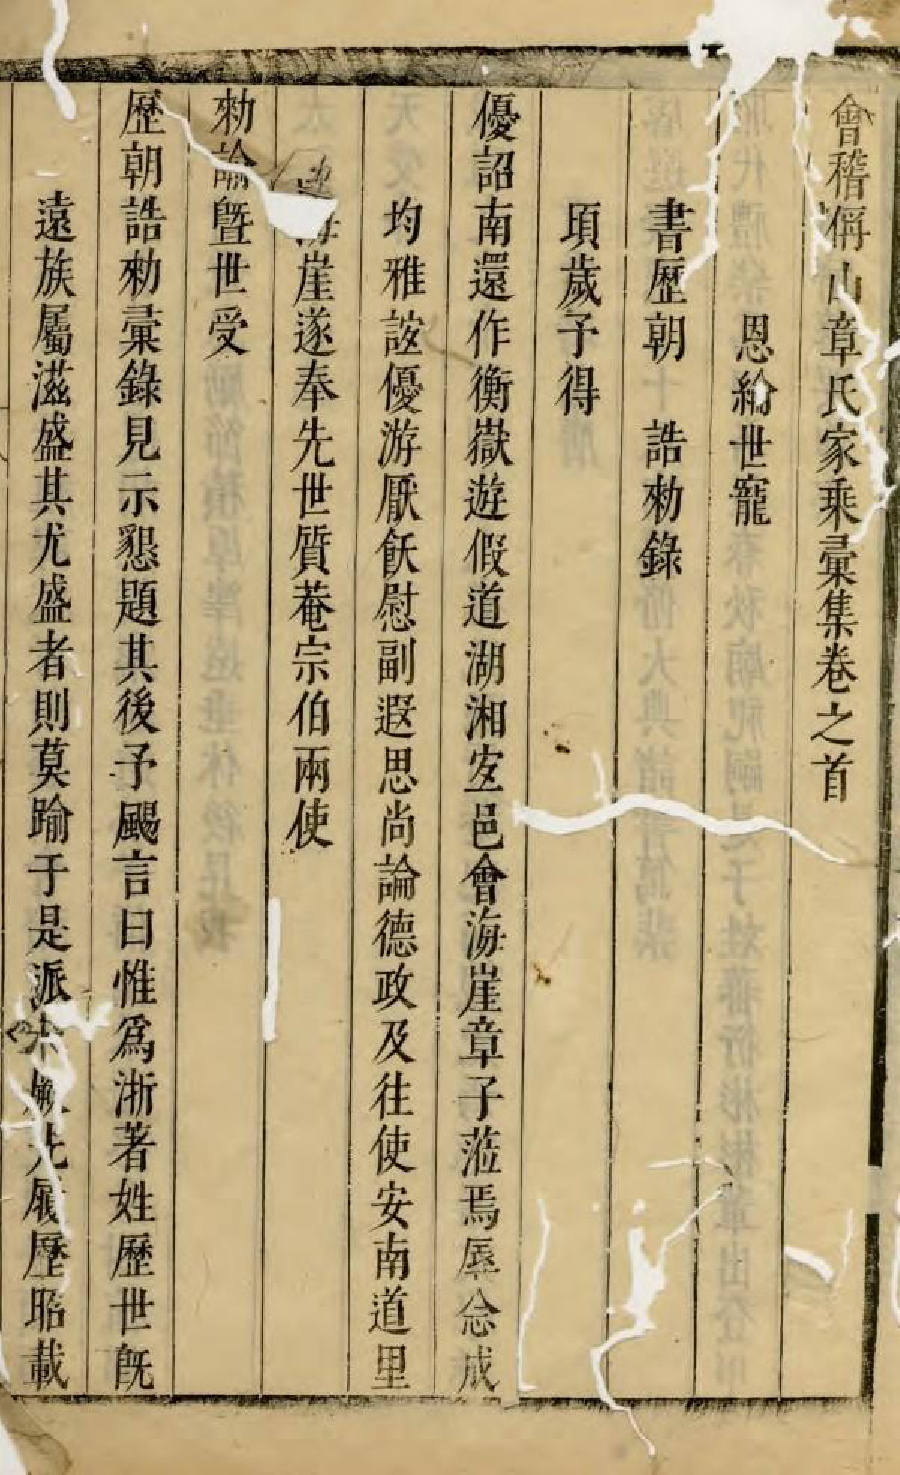 會稽偁山章氏家乘彙集卷之首
恩綸世寵
書歷朝誥勑錄
項歲予得
優詔南還作衡嶽遊假道湖湘宻邑會海崖章子蒞焉辱念成
均雅誼優游厭飫慰副遐思尚論德政及往使安南道里
海崖遂奉先世質菴宗伯兩使
勑諭曁世受
歷朝誥勑彙錄見示懇題其後予颺言曰惟爲浙著姓歷世旣
遠族屬滋盛其尤盛者則莫踰于是派先履歷昭載